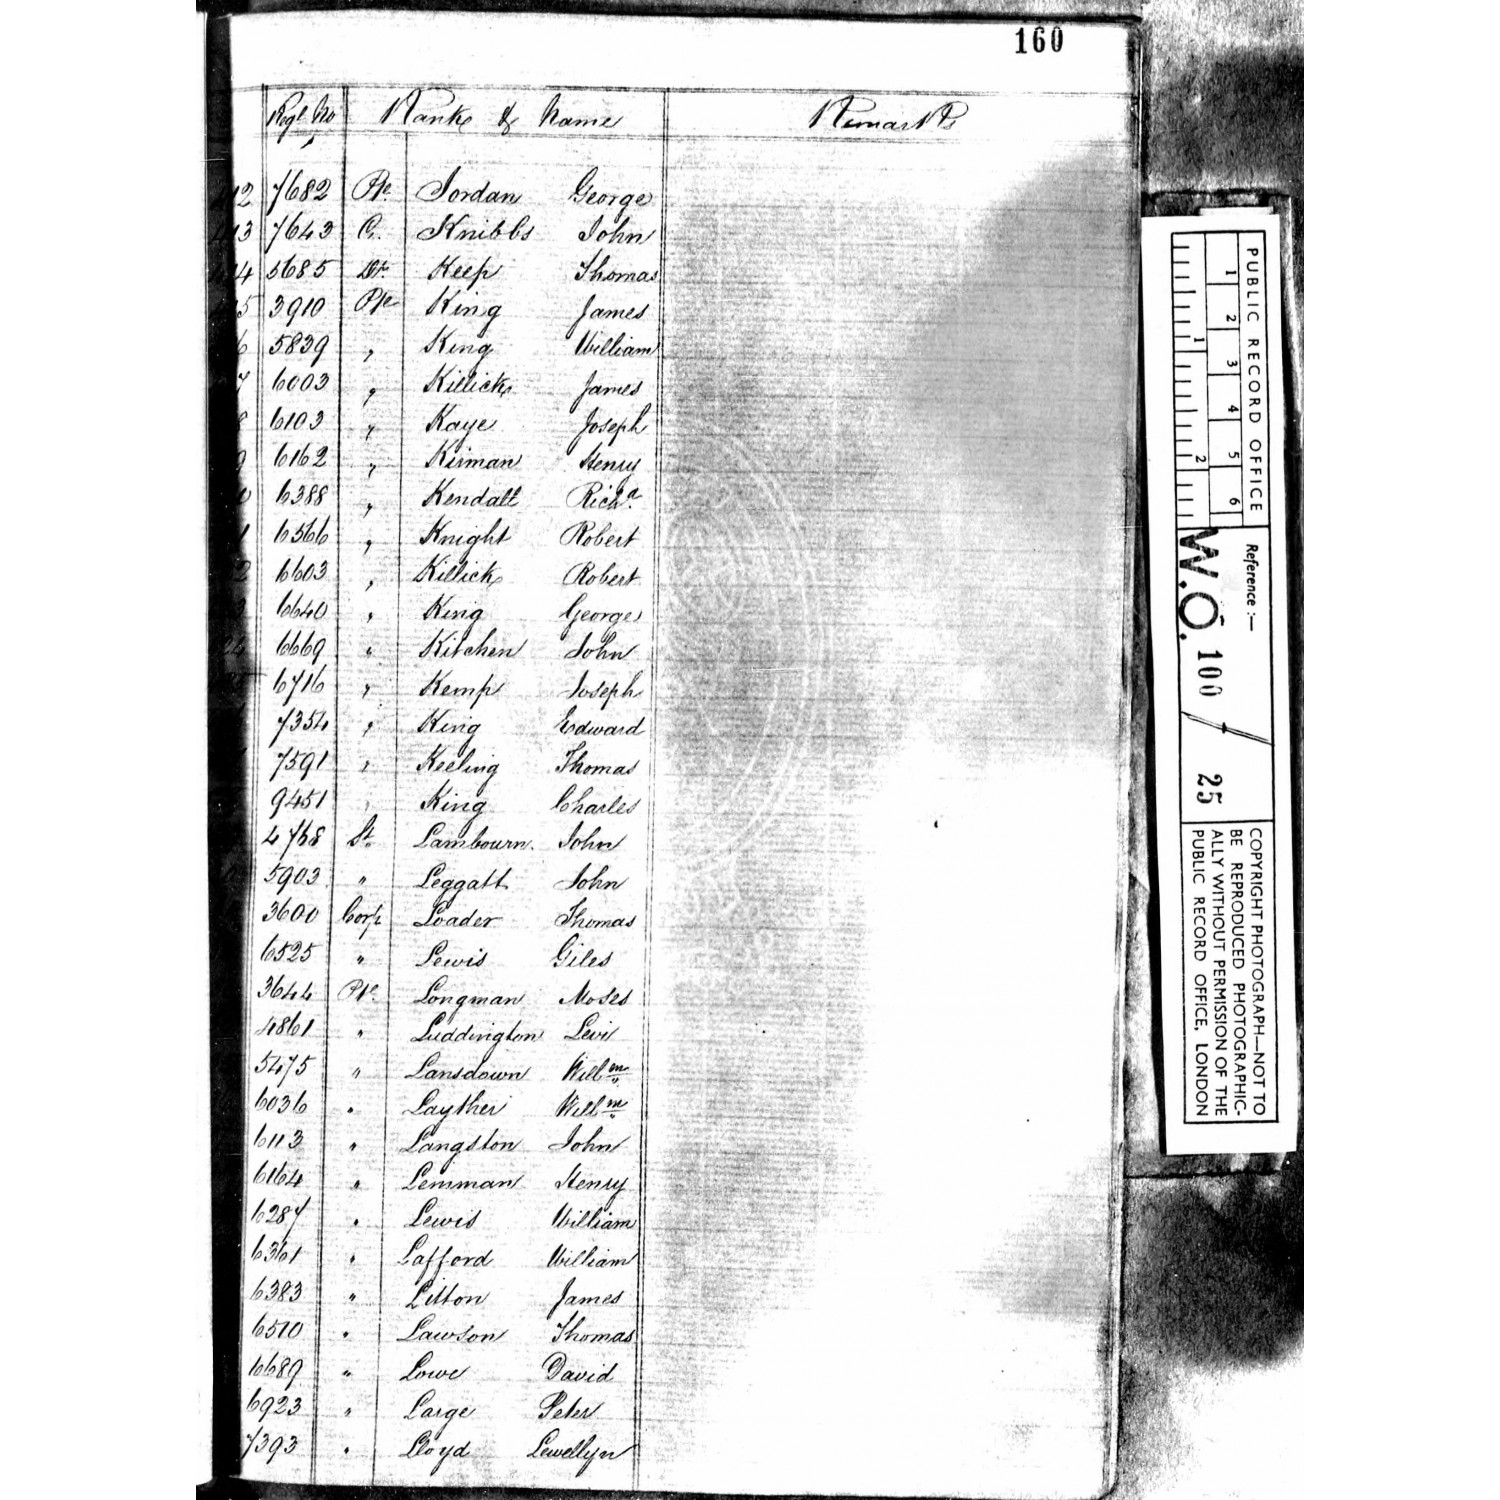 160
Regl No Rank & Name Remarks
7682 Pte. Jordan George
7643 C. Knibbs John
5685 Dr. Keep Thomas
3910 Pte King James
5839 " King William
6003 " Killick James
6103 " Kaye Joseph
6162 " Kirman Henry
6388 " Kendall Richd.
6566 " Knight Robert
6603 " Killick Robert
6640 " King George
6669 " Kitchen John
6716 " Kemp Joseph
7354 " King Edward
7591 " Keeling Thomas
9451 " King Charles
4768 St. Lambourn. John
5903 " Leggatt John
3600 Corpl Loader Thomas
6525 " Lewis Giles
3644 Pte. Longman Moses
4861 " Luddington Levi
5475 " Lansdown Willm
6036 " Layther Willm
6113 " Langston John
6164 " Lensman Henry
6287 " Lewis William
6361 " Lafford William
6383 " Litton James
6510 " Lawson Thomas
6689 " Lowe David
6923 " Large Peter
7393 " Lloyd Lewellyn
PUBLIC RECORD OFFICE
1 2 3 4 5 6
1 2
Reference :-
W.O. 100 / 25
COPYRIGHT PHOTOGRAPH—NOT TO
BE REPRODUCED PHOTOGRAPHIC-
ALLY WITHOUT PERMISSION OF THE
PUBLIC RECORD OFFICE, LONDON